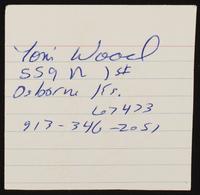 Tom Wood
559 N 1st
Osborne Ks.
67473
913-346-2051